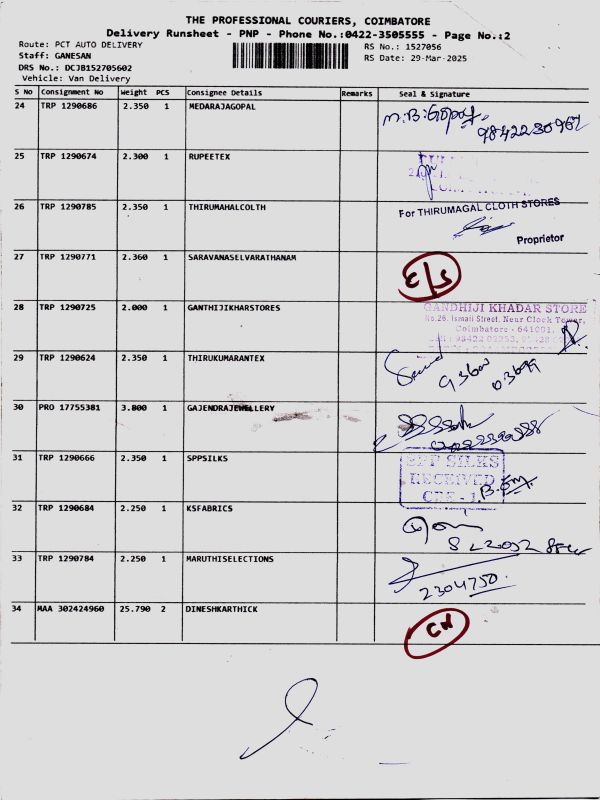 THE PROFESSIONAL COURIERS, COIMBATORE
Delivery Runsheet - PNP - Phone No.:0422-3505555 - Page No.:2
Route: PCT AUTO DELIVERY RS No.: 1527056
Staff: GANESAN RS Date: 29-Mar-2025
DRS No.: DCJB152705602
Vehicle: Van Delivery
S No Consignment No Weight PCS Consignee Details Remarks Seal & Signature
24 TRP 1290686 2.350 1 MEDARAJAGOPAL
25 TRP 1290674 2.300 1 RUPEETEX
26 TRP 1290785 2.350 1 THIRUMAHALCOLTH
For THIRUMAGAL CLOTH STORES
Proprietor
27 TRP 1290771 2.360 1 SARAVANASELVARATHANAM
28 TRP 1290725 2.000 1 GANTHIJIKHARSTORES GANDHIJI KHADAR STORE
No.26, Ismail Street, Near Clock Tower,
Coimbatore - 641001.
29 TRP 1290624 2.350 1 THIRUKUMARANTEX
30 PRO 17755381 3.800 1 GAJENDRAJEWELLERY
31 TRP 1290666 2.350 1 SPPSILKS SPP SILKS
RECEIVED
32 TRP 1290684 2.250 1 KSFABRICS
33 TRP 1290784 2.250 1 MARUTHISELECTIONS
2304750.
34 MAA 302424960 25.790 2 DINESHKARTHICK
CN